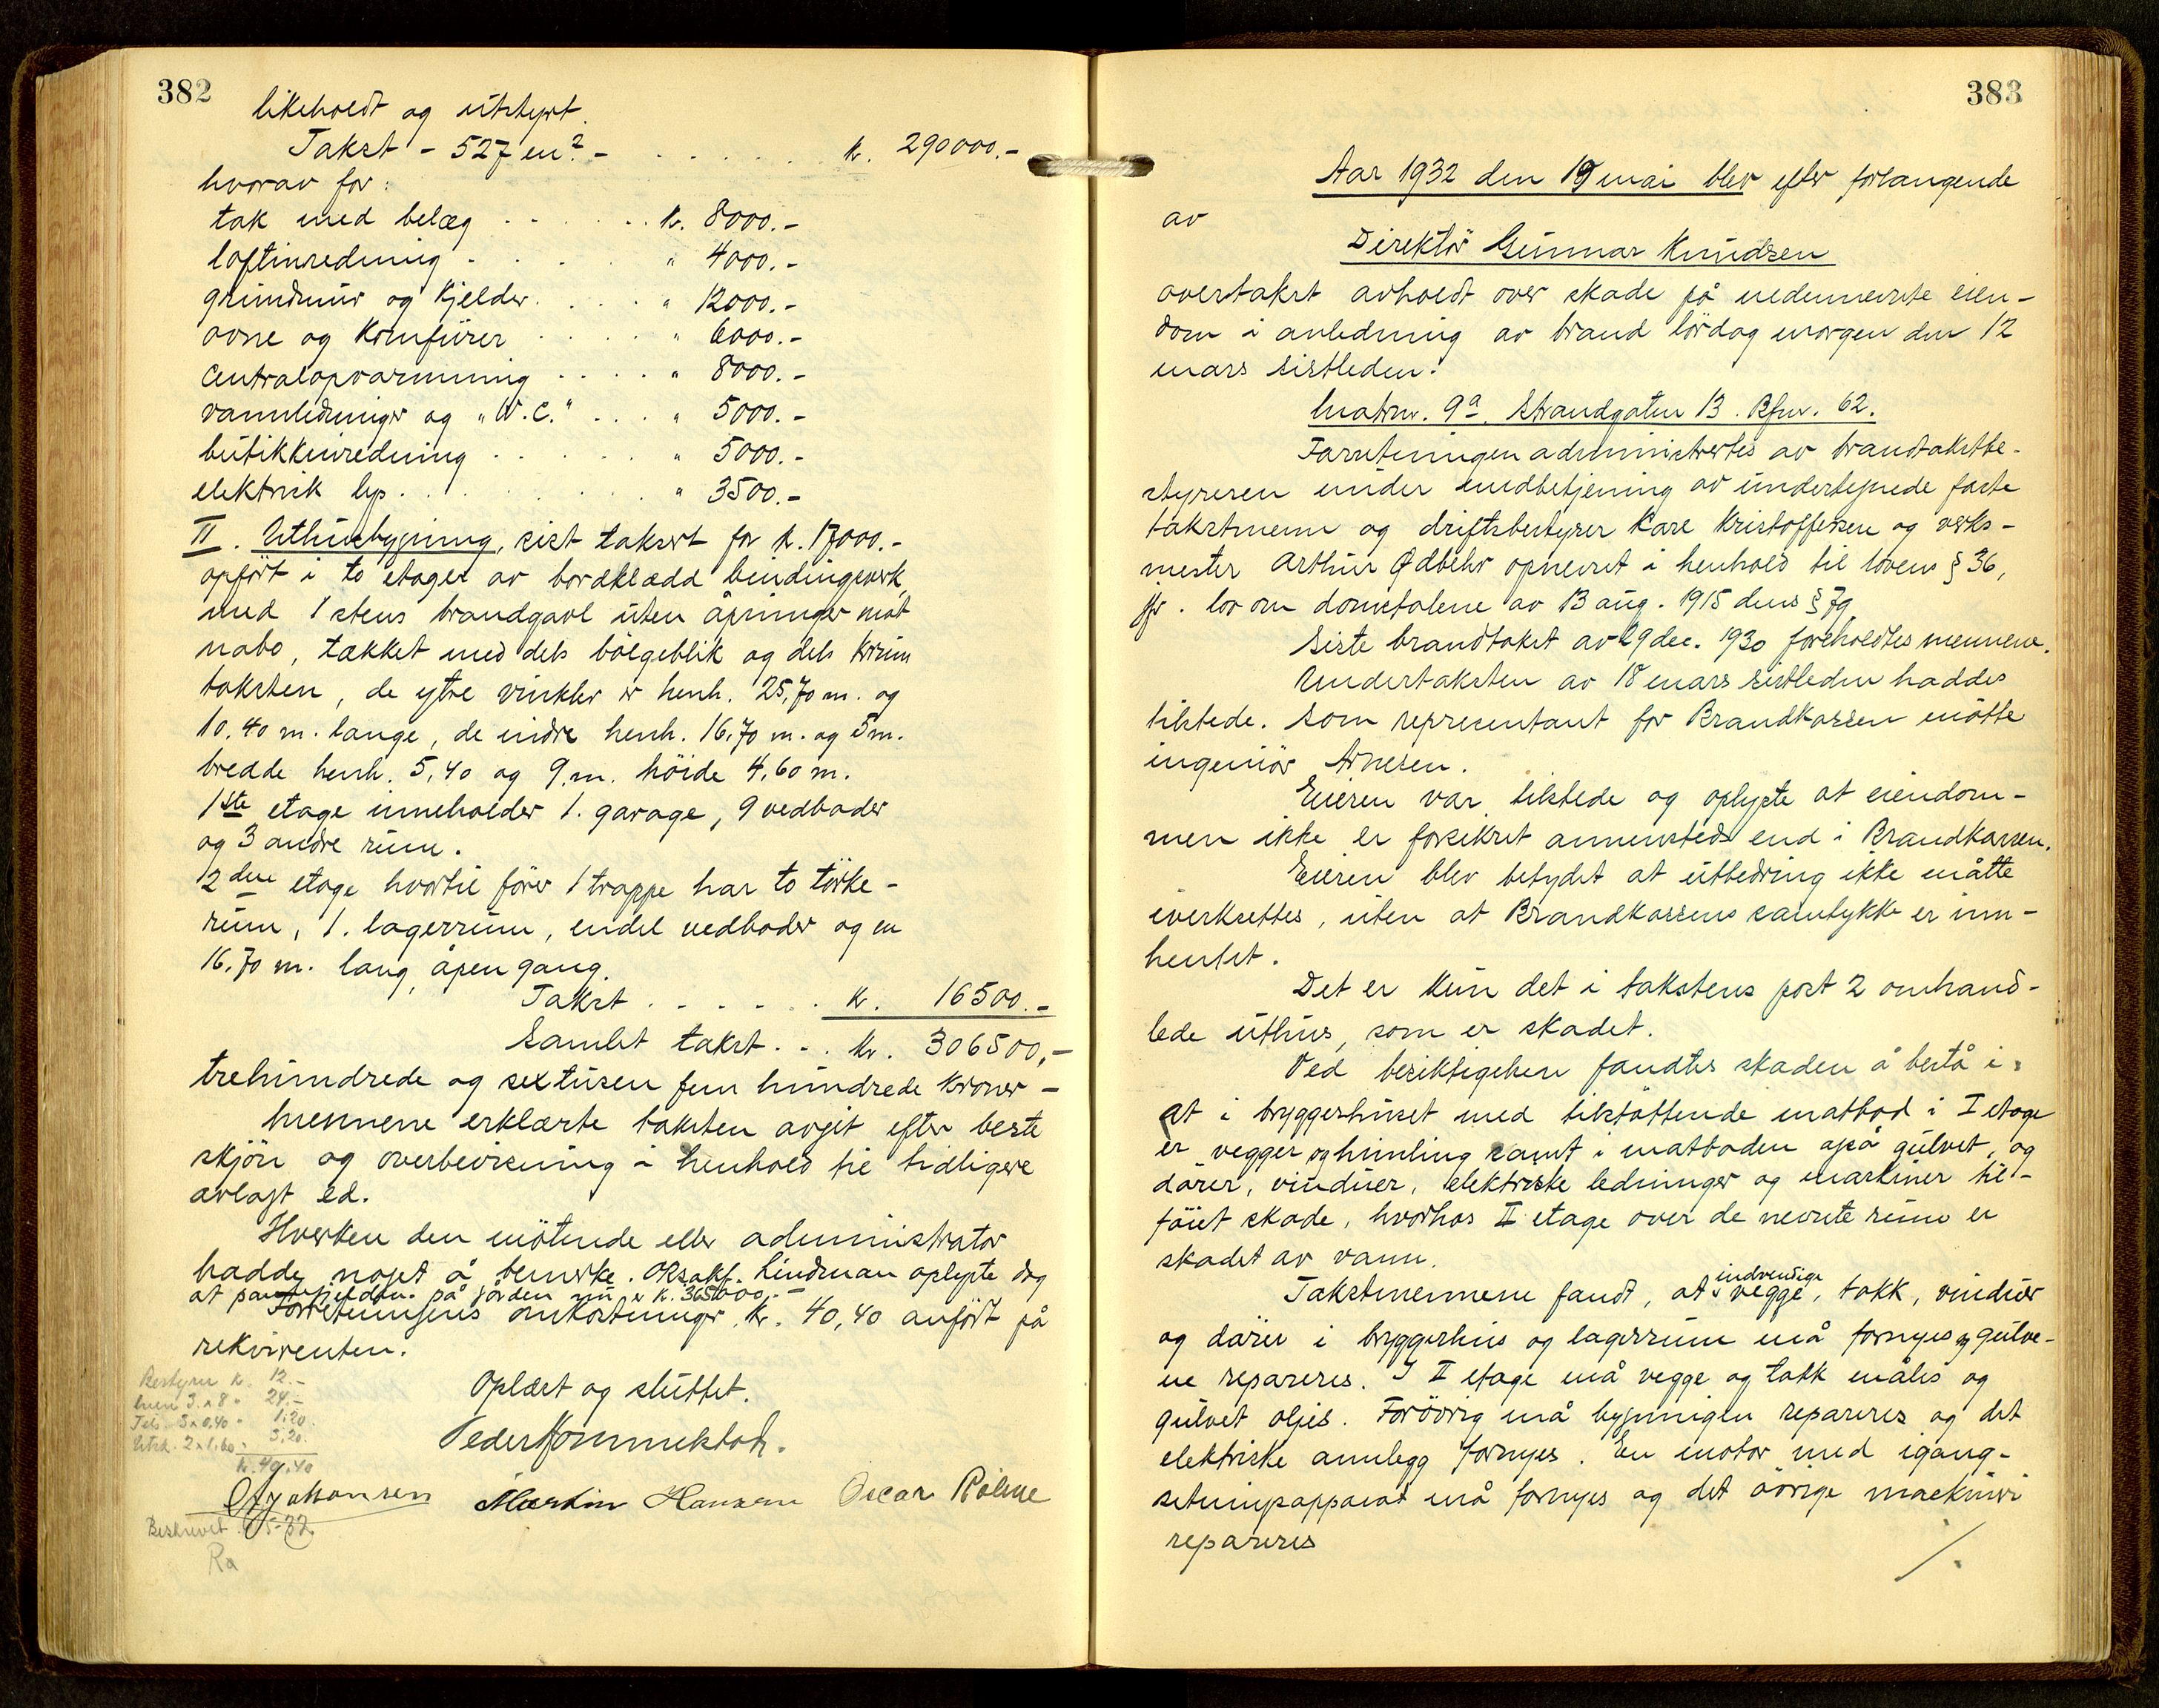 382
likeholdt og utstyrt.
Takst - 527 m² - . . . . . . kr. 290000.-
hvorav for:
tak med belæg . . . . . . kr. 8000.-
loftinredning . . . . . " 4000.-
grundmur og kjelder . . . . " 12000.-
ovne og komfürer . . . . " 6000.-
centralopvarmning . . . . " 8000.-
vannledninger og "W.C." . . . " 5000.-
butikkinredning . . . . . " 5000.-
elektrisk lys . . . . . . . " 3500.-
II. Uthusbygning, sist taksert for kr. 17000.-
opført i to etager av bordklædd bindingsverk,
med 1 stens brandgavl uten åpninger mot
nabo, tækket med dels bölgeblik og dels krum
taksten, de ytre vinkler er henh. 25,70 m. og
10.40 m. lange, de indre henh. 16,70 m. og 5 m.
bredde henh. 5,40 og 9. m. höide 4,60 m.
1ste etage inneholder 1. garage, 9 vedboder
og 3 andre rum.
2den etage hvortil förer 1 trappe har to törke-
rum, 1. lagerrum, endel vedboder og en
16,70 m. lang, åpen gang.
Takst . . . . . kr. 16500.-
Samlet takst . . . kr. 306500,-
trehundrede og sextusen fem hundrede kroner -
Mennene erklærte taksten avgit efter beste
skjön og overbevisning i henhold til tidligere
avlagt ed.
Hverken den mötende eller administrator
hadde noget å bemerke. Oksakf. Lindman oplyste dog
at pantegjelden på jorden nu er kr. 365000.-
Forretningens omkostninger kr. 40,40 anfört på
rekvirenten.
Bestyrer kr. 12.-
Menn 3 x 8 " 24.-
Tels. 3 x 0,40 " 1.20.
Utsk. 2 x 1.60 " 3,20.
kr. 40,40
Oplæst og sluttet.
Peder
Johansen Martin Hansen Oscar
Beskrevet 6/5-32
Ra
383
Aar 1932 den 19 mai blev efter forlangende
av
Direktör Gunnar Knudsen
overtakst avholdt over skade på nedennevnte eien-
dom i anledning av brand lördag morgen den 12
mars sistleden:
Matrnr. 9a. Strandgaten 13. Bfnr. 62.
Forretningen administrertes av brandtakstbe-
styreren under medbetjening av undertegnede faste
takstmenn og driftsbestyrer Kare Kristoffersen og verks-
mester Arthur Ødbehr opnevnt i henhold til lovens § 36,
jfr. lov om domstolene av 13 aug. 1915 dens § 79
Siste brandtakst av 29 dec. 1930 foreholdtes mennene.
Undertaksten av 18 mars sistleden haddes
tilstede. Som representant for Brandkassen mötte
ingeniör Arnesen.
Eieren var tilstede og oplyste at eiendom-
men ikke er forsikret annensteds end i Brandkassen.
Eieren blev betydet at utbedring ikke måtte
iverksettes, uten at Brandkassens samtykke er inn-
hentet.
Det er kun det i takstens post 2 omhand-
lede uthus, som er skadet.
Ved besiktigelsen fandtes skaden å bestå i:
at i bryggerhuset med tilstöttende matbod i I etage
er vegger og himling samt i matboden også gulvet, og
dörer, vinduer, elektriske ledninger og maskiner til-
föiet skade, hvorhos II etage over de nevnte rum er
skadet av vann.
Takstmennene fandt, at indvendige vegge, takk, vinduer
og dörer i bryggerhus og lagerrum må fornyes og gulve-
ne repareres. I II etage må vegge og takk males og
gulvet oljes. Forövrig må bygningen repareres og det
elektriske annlegg fornyes. En motor med igang-
setningsapparat må fornyes og det övrige maskineri
repareres
/.